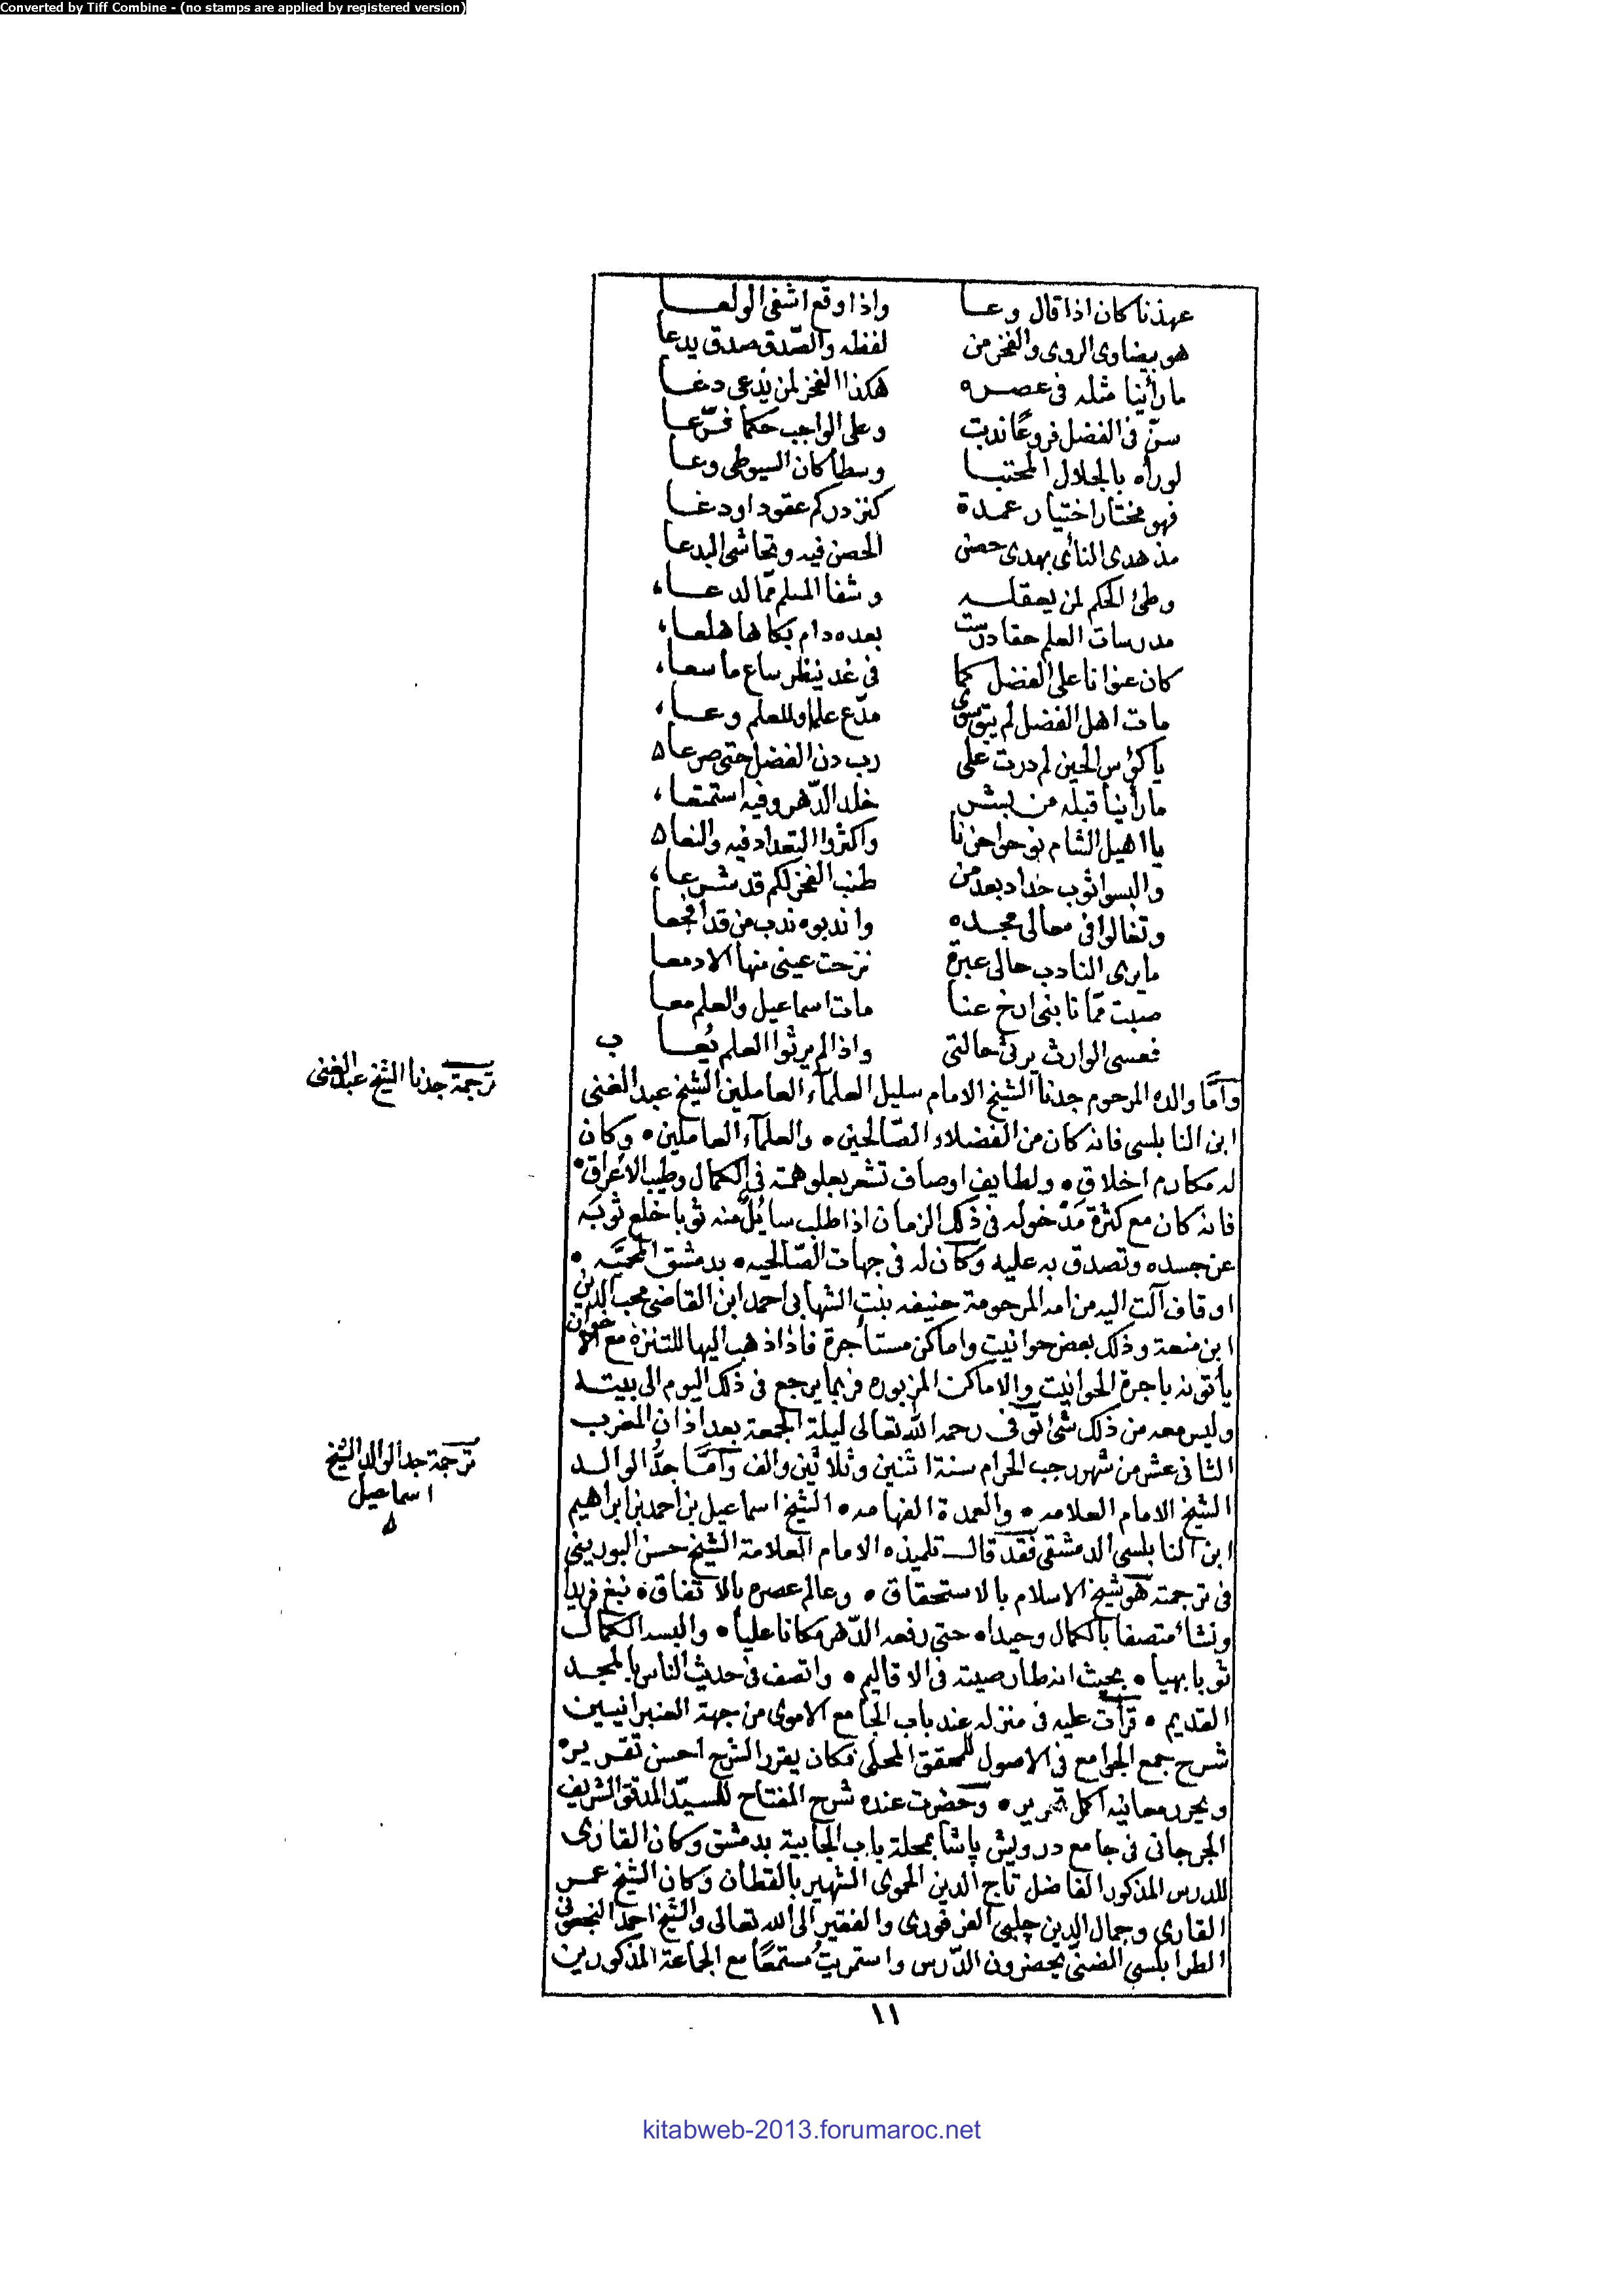 Converted by Tiff Combine - (no stamps are applied by registered version)
عهدنا كان اذا قال وعا واذا وقع اشفى الولعا
هو بيضاوى الروى والفخر من لفظه والصّدق صدق يدعا
ما رأينا مثله فى عصره هكذا الفخر لمن يدعى دعا
سنّ فى الفضل فروعًا ندبت وعلى الواجب حكما فرّعا
لو رآه بالجلال المحتبا وسطا كان السيوطى وعا
فهو مختار اختيار عمدة كنز در كم عقود اودعا
مذ هدى النأى بهدى حصنى الحصن فيه وتحاشى البدعا
وطئ الحكم لمن يعقله وشفا المسلم ممّا لدعا
مدرسات العلم حقا درست بعده دام بكاها هلعا
كان عنوانا على الفضل كما فى غد ينظر ساع ما سعا
مات اهل الفضل لم يبق سوى مدّع علما وللعلم وعا
يا كؤس الحين لم درت على رب دن الفضل حتى صرعا
ما رأينا قبله من بشر خلد الدّهر وفيه استمتعا
يا اهيل الشام نوحوا حزنا واكثروا التعداد فيه والنعا
والبسوا ثوب حداد بعد من طنب الفخر لكم قد شرعا
وتغالوا فى معالى مجده واندبوه ندب من قد افجعا
ما يرى النادب حالى عبرة نزحت عينى منها الادمعا
صبت ممّا نابنى ارخ عنا مات اسماعيل والعلم معا
فعسى الوارث يرثى حالتى واذا لم يرثوا العلم نُعا ب
ترجمة جدنا الشيخ عبد الغنى
وامّا والده المرحوم جدنا الشيخ الامام سليل العلمآء العاملين الشيخ عبد الغنى
ابن النابلسى فانه كان من الفضلاء الصّالحين • والعلمآء العاملين • وكان
له مكارم اخلاق • ولطايف اوصاف تشعر بعلو همته فى الكمال وطيب الاعراق •
فانه كان مع كثرة مدخوله فى ذلك الزمان اذا طلب سايلٌ منه ثوبا خلع ثوبه
عن جسده وتصدق به عليه وكان له فى جهات الصّالحيه • بدمشق المحميّه •
اوقاف آلت اليه من امه المرحومة حنيفه بنت الشهابى احمد ابن القاضى محب الدين
ابن منعة وذلك بعض حوانيت واماكن مستأجرة فاذا ذهب اليها للتنزه مع الاخوان
يأتونه باجرة الحوانيت والاماكن المزبوره فربما يرجع فى ذلك اليوم الى بيته
وليس معه من ذلك شئ توفى رحمه الله تعالى ليلة الجمعة بعد اذان المغرب
الثانى عشر من شهر رجب الحرام سنة اثنين وثلاثين والف وامّا جدُّ الوالد
ترجمة جد الوالد الشيخ
اسماعيل
الشيخ الامام العلامه • والعمدة الفهامه • الشيخ اسماعيل بن احمد بن ابراهيم
ابن النابلسى الدمشقى فقد قال تلميذه الامام العلامة الشيخ حسن البورينى
فى ترجمته هو شيخ الاسلام بالاستحقاق • وعالم عصره بالاتفاق • نبغ فريدا
ونشأ متصفا بالكمال وحيدا • حتى رفعه الدّهر مكانا عليا • والبسه الكمال
ثوبا بهيا • بحيث انه طار صيته فى الاقاليم • واتصف فى حديث الناس بالمجد
القديم • قرأت عليه فى منزله عند باب الجامع الاموى من جهة العنبرانيين
شرح جمع الجوامع فى الاصول للمحقق المحلى فكان يقرر الشرح احسن تقرير •
ويحرر معانيه اكمل تحرير • وحضرت عنده شرح المفتاح للسيّد المدقق الشريف
الجرجانى فى جامع درويش پاشا بمحلة باب الجابية بدمشق وكان القارى
للدرس المذكور الفاضل تاج الدين الحموى الشهير بالقطان وكان الشيخ عمر
القارى وجمال الدين چلبى الفرفورى والفقير الى الله تعالى والشيخ احمد النجعوانى
الطرابلسى المفنّى يحضرون الدّرس واستمريتُ مستمعًا مع الجماعة المذكورين
١١
kitabweb-2013.forumaroc.net